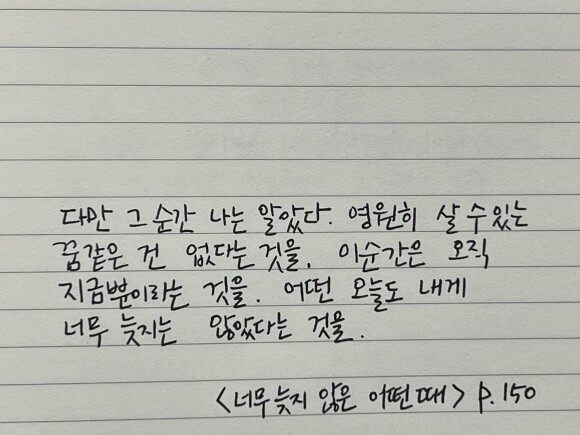 다만 그 순간 나는 알았다. 영원히 살 수 있는
꿈같은 건 없다는 것을. 이순간은 오직
지금뿐이라는 것을. 어떤 오늘도 내게
너무 늦지는 않았다는 것을.
<너무 늦지 않은 어떤 때> p.150